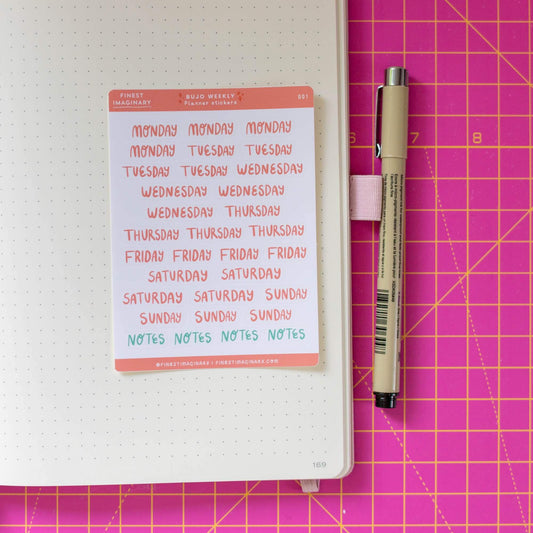 FINEST IMAGINARY
BUJO WEEKLY
Planner stickers
001
MONDAY MONDAY MONDAY
MONDAY TUESDAY TUESDAY
TUESDAY TUESDAY WEDNESDAY
WEDNESDAY WEDNESDAY
WEDNESDAY THURSDAY
THURSDAY THURSDAY THURSDAY
FRIDAY FRIDAY FRIDAY FRIDAY
SATURDAY SATURDAY
SATURDAY SATURDAY SUNDAY
SUNDAY SUNDAY SUNDAY
NOTES NOTES NOTES NOTES
@FINESTIMAGINARY | FINESTIMAGINARY.COM
169
7 8